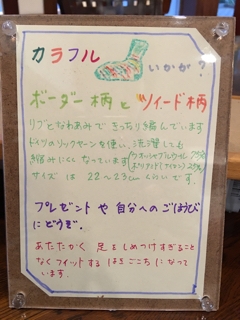 カラフル
いかが？
ボーダー柄とツイード柄
リブとなわあみで きっちり編んでいます
ドイツのソックヤーンを使い、洗濯しても
縮みにくくなっています(ウォッシャブルウール 75%
ポリアミド(ナイロン) 25%)
サイズは 22〜23cmくらいです。
プレゼントや自分へのごほうび
にどうぞ。
あたたかく 足をしめつけすぎること
なくフィットする はきごこちになって
います。